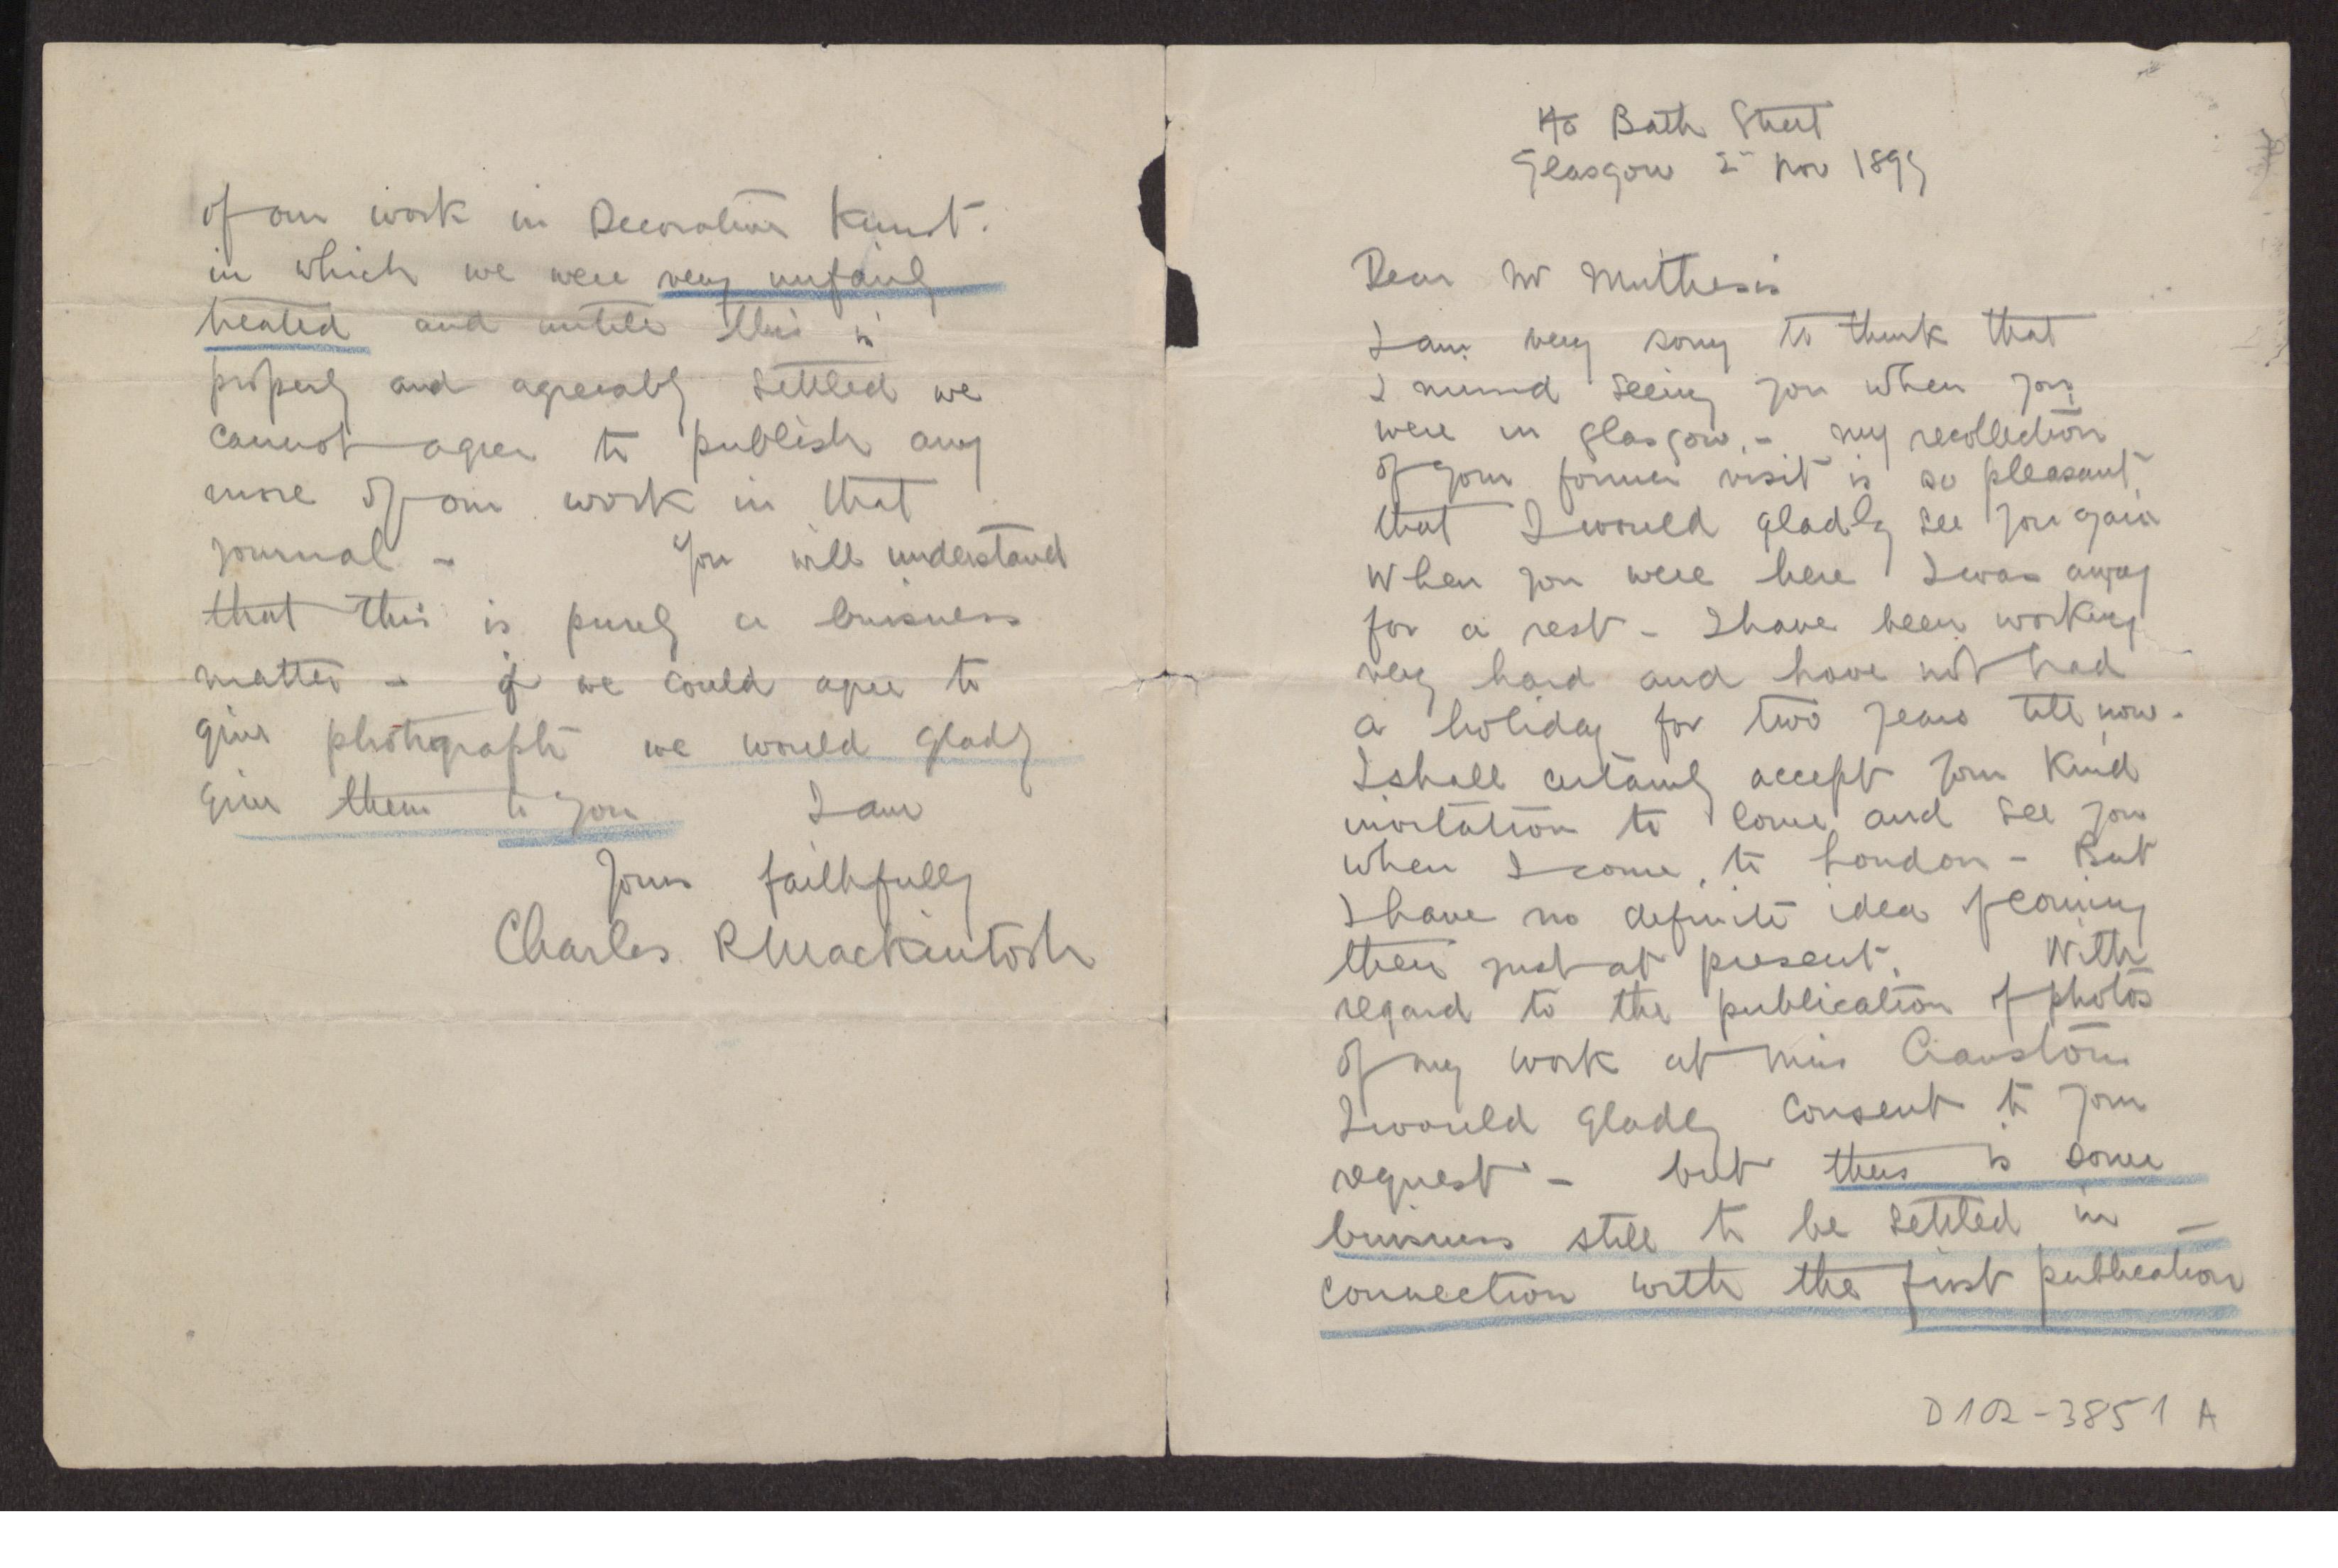 140 Bath Street
Glasgow 2nd Nov 1899
Dear Mr Muthesis
I am very sorry to think that
I missed seeing you when you
were in Glasgow, - my recollection
of your former visit is so pleasant,
that I would gladly see you again
When you were here I was away
for a rest - I have been working
very hard and have not had
a holiday for two years till now -
I shall certainly accept your kind
invitation to come and see you
when I come, to London - But
I have no definite idea of coming
there just at present. With
regard to the publication of photos
of my work at Miss Cranstons
I would gladly consent to your
request - but there is some
buisness still to be settled in
connection with the first publication
D102-3851 A
of our work in Decorative Kunst.
in which we were very unfairly
treated and untill this is
properly and agreeably settled we
cannot agree to publish any
more of our work in that
journal - You will understand
that this is purely a buisness
matter - if we could agree to
give photographs we would gladly
give them to you I am
Yours faithfully
Charles R Mackintosh